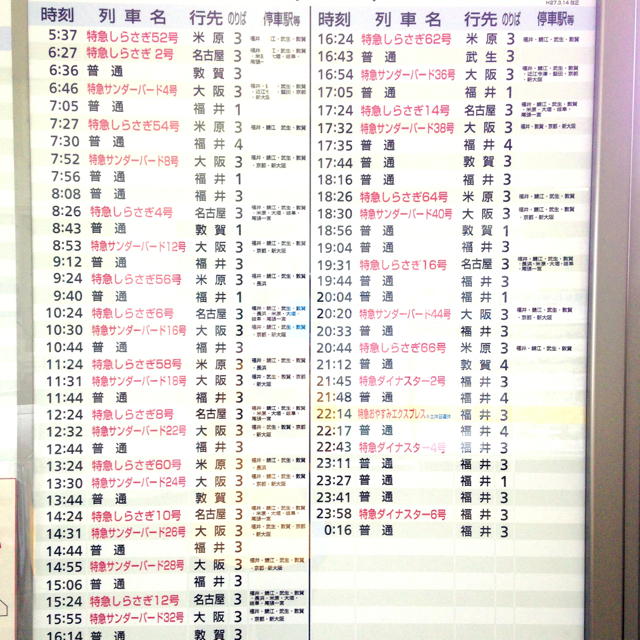 H27.3.14 改正
時刻 列車名 行先 のりば 停車駅等
5:37 特急しらさぎ52号 米原 3 福井・鯖江・武生・敦賀
6:27 特急しらさぎ 2号 名古屋 3
6:36 普通 敦賀 3
6:46 特急サンダーバード4号 大阪 3
7:05 普通 福井 1
7:27 特急しらさぎ54号 米原 3 福井・鯖江・武生・敦賀
7:30 普通 福井 4
7:52 特急サンダーバード8号 大阪 3 福井・鯖江・武生・敦賀・京都・新大阪
7:56 普通 福井 1
8:08 普通 福井 3
8:26 特急しらさぎ4号 名古屋 3 福井・鯖江・武生・敦賀・米原・大垣・岐阜・尾張一宮
8:43 普通 敦賀 1
8:53 特急サンダーバード12号 大阪 3 福井・鯖江・武生・敦賀・京都・新大阪
9:12 普通 福井 3
9:24 特急しらさぎ56号 米原 3 福井・鯖江・武生・敦賀・長浜
9:40 普通 福井 1
10:24 特急しらさぎ6号 名古屋 3 福井・鯖江・武生・敦賀・長浜・米原・大垣・岐阜・尾張一宮
10:30 特急サンダーバード16号 大阪 3 福井・鯖江・武生・敦賀・京都・新大阪
10:44 普通 福井 3
11:24 特急しらさぎ58号 米原 3 福井・鯖江・武生・敦賀・長浜
11:31 特急サンダーバード18号 大阪 3 福井・武生・敦賀・京都・新大阪
11:44 普通 福井 3
12:24 特急しらさぎ8号 名古屋 3 福井・鯖江・武生・敦賀・米原・大垣・岐阜・尾張一宮
12:32 特急サンダーバード22号 大阪 3 福井・武生・敦賀・京都・新大阪
12:44 普通 福井 3
13:24 特急しらさぎ60号 米原 3 福井・鯖江・武生・敦賀・長浜
13:30 特急サンダーバード24号 大阪 3 福井・鯖江・武生・敦賀・京都・新大阪
13:44 普通 敦賀 3
14:24 特急しらさぎ10号 名古屋 3 福井・鯖江・武生・敦賀・米原・大垣・岐阜・尾張一宮
14:31 特急サンダーバード26号 大阪 3 福井・武生・敦賀・京都・新大阪
14:44 普通 福井 3
14:55 特急サンダーバード28号 大阪 3 福井・鯖江・武生・敦賀・京都・新大阪
15:06 普通 福井 3
15:24 特急しらさぎ12号 名古屋 3 福井・鯖江・武生・敦賀・長浜・米原・大垣・岐阜・尾張一宮
15:55 特急サンダーバード32号 大阪 3 福井・鯖江・武生・敦賀・京都・新大阪
16:14 普通 敦賀 3
時刻 列車名 行先 のりば 停車駅等
16:24 特急しらさぎ62号 米原 3 福井・鯖江・武生・敦賀
16:43 普通 武生 3
16:54 特急サンダーバード36号 大阪 3 福井・鯖江・武生・敦賀・近江今津・堅田・京都・新大阪
17:05 普通 福井 1
17:24 特急しらさぎ14号 名古屋 3 福井・鯖江・武生・敦賀・米原・大垣・岐阜・尾張一宮
17:32 特急サンダーバード38号 大阪 3 福井・敦賀・京都・新大阪
17:35 普通 福井 4
17:44 普通 敦賀 3
18:16 普通 福井 3
18:26 特急しらさぎ64号 米原 3 福井・鯖江・武生・敦賀
18:30 特急サンダーバード40号 大阪 3 福井・鯖江・武生・敦賀・京都・新大阪
18:56 普通 敦賀 1
19:04 普通 福井 3
19:31 特急しらさぎ16号 名古屋 3 福井・鯖江・武生・敦賀・長浜・米原・大垣・岐阜・尾張一宮
19:44 普通 福井 3
20:04 普通 福井 1
20:20 特急サンダーバード44号 大阪 3 福井・鯖江・武生・敦賀・京都・新大阪
20:33 普通 福井 3
20:44 特急しらさぎ66号 米原 3 福井・鯖江・武生・敦賀
21:12 普通 敦賀 4
21:45 特急ダイナスター2号 福井 3
21:48 普通 福井 4
22:14 特急おやすみエクスプレス 福井 3
22:17 普通 福井 4
22:43 特急ダイナスター4号 福井 3
23:11 普通 福井 3
23:27 普通 福井 1
23:41 普通 福井 3
23:58 特急ダイナスター6号 福井 3
0:16 普通 福井 3